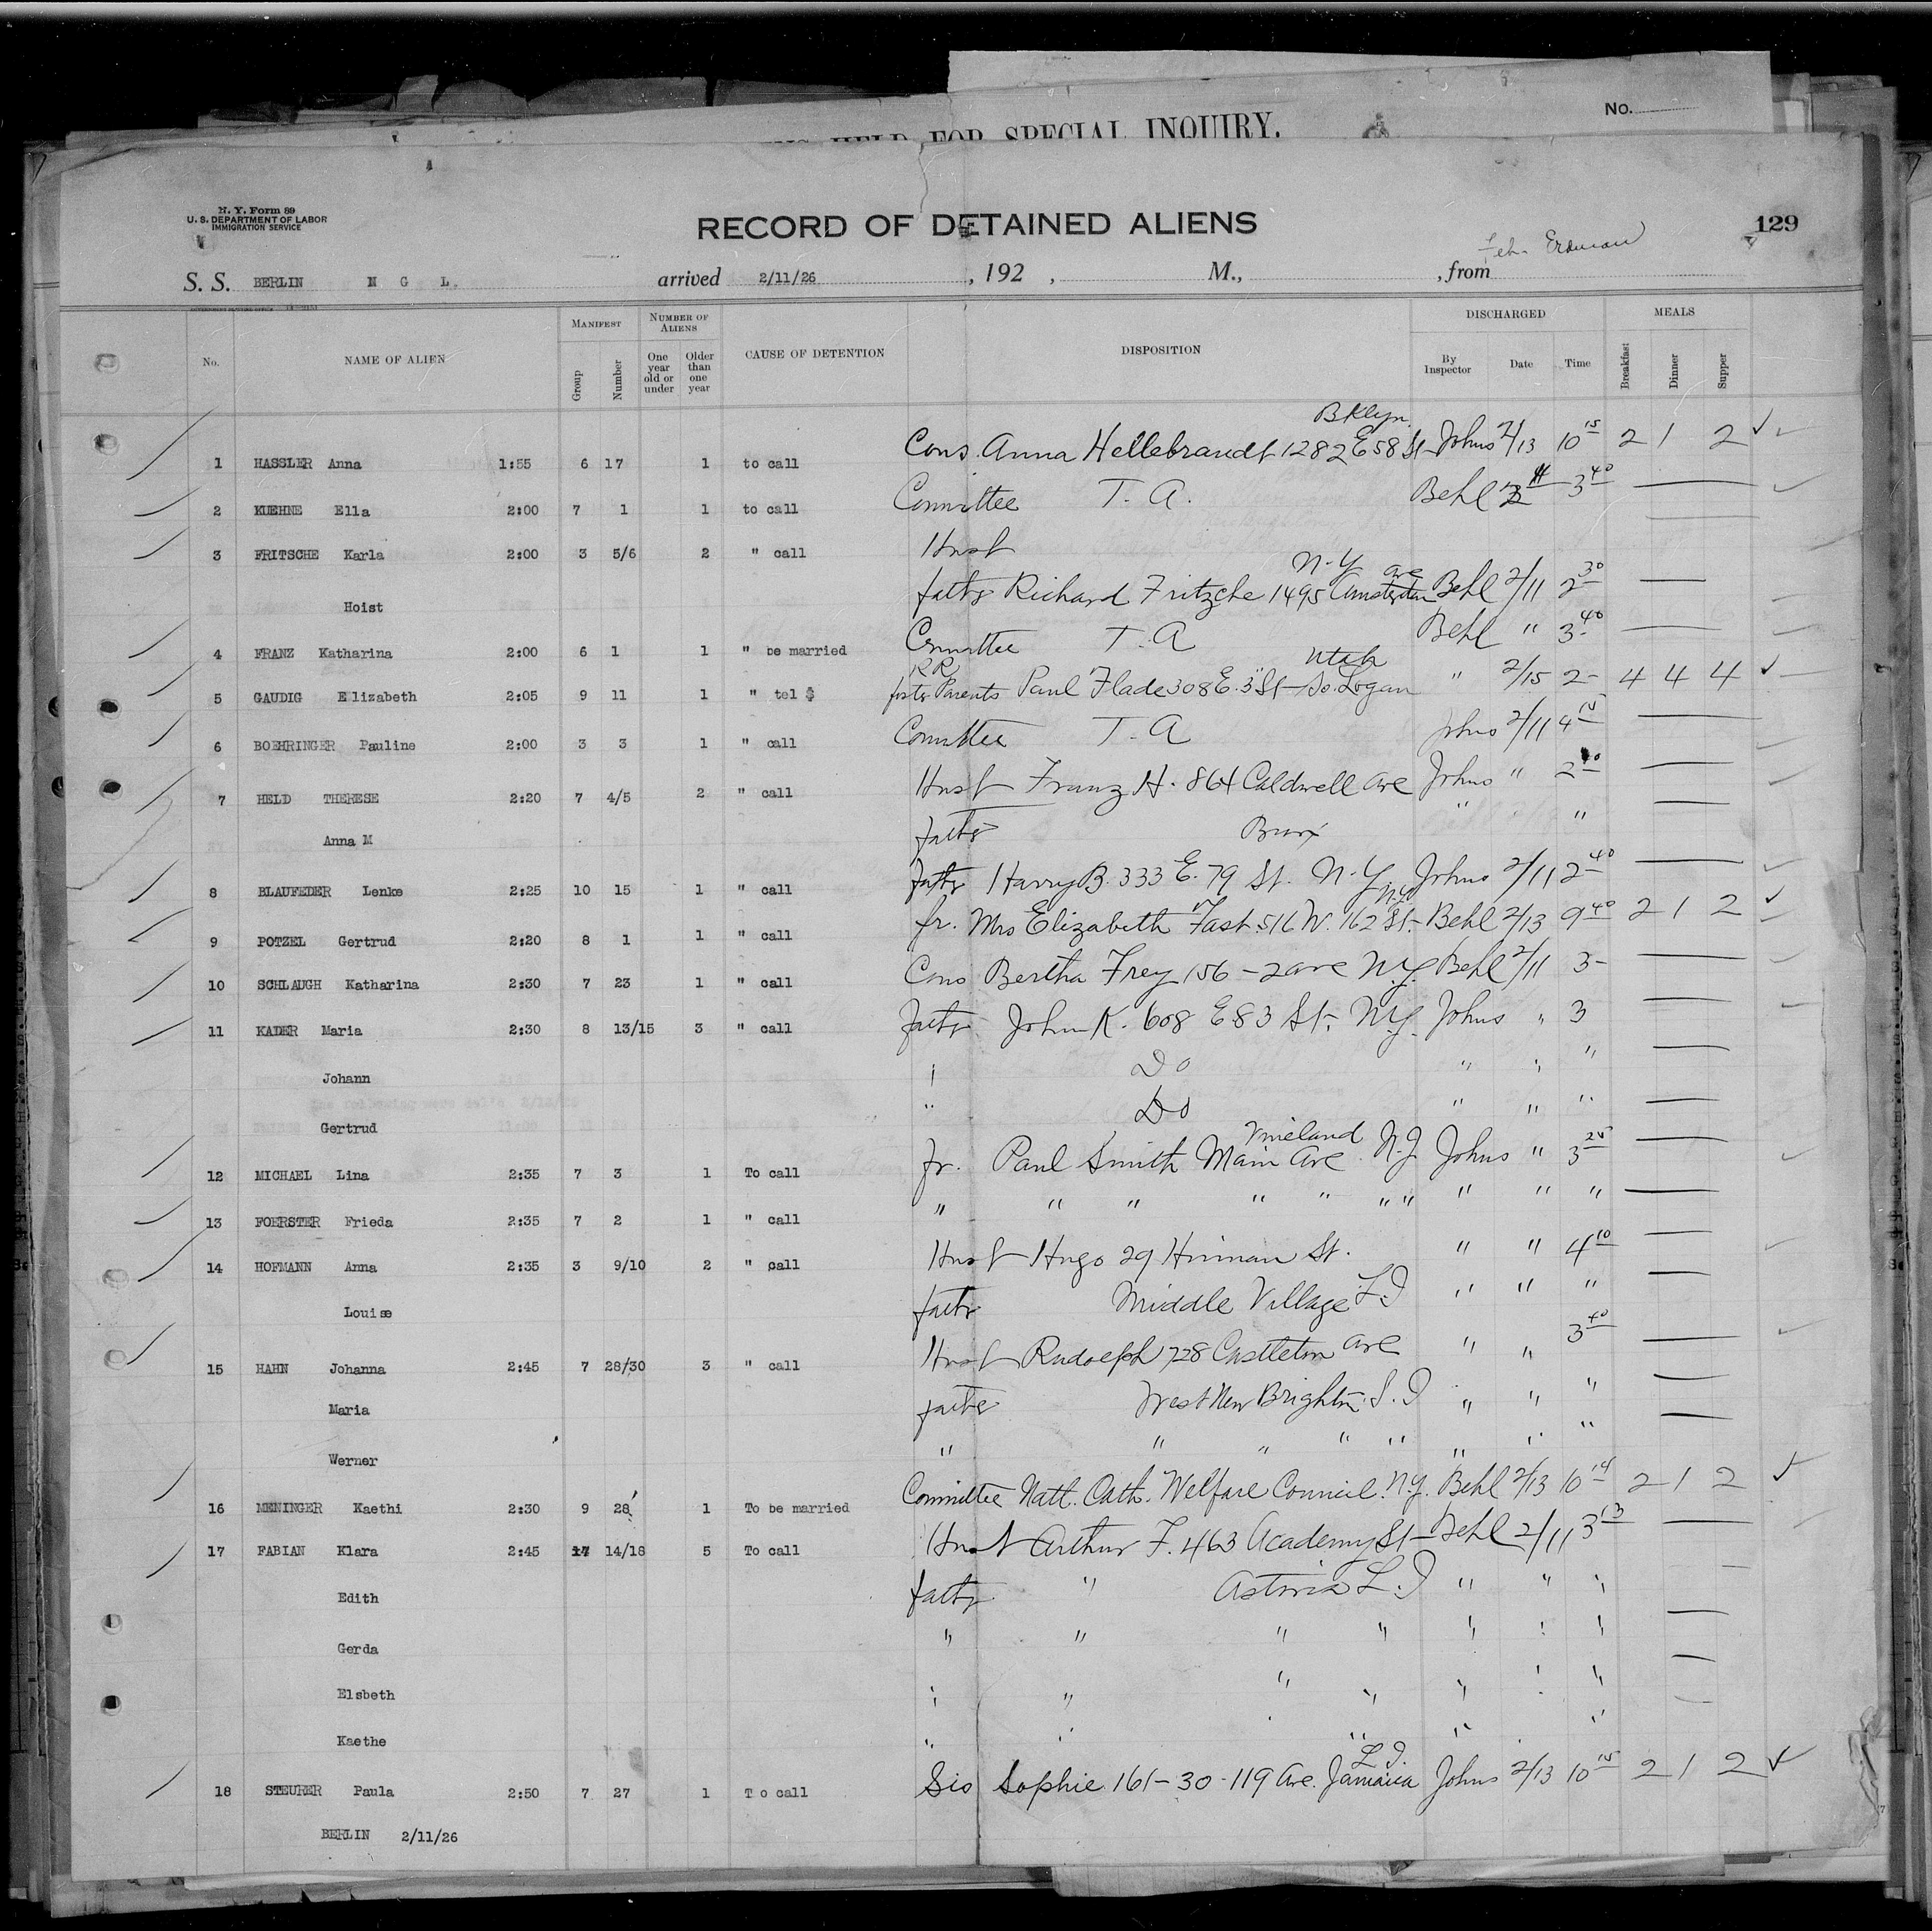 No.
HELD FOR SPECIAL INQUIRY.
N. Y. Form 89
U. S. DEPARTMENT OF LABOR
IMMIGRATION SERVICE
RECORD OF DETAINED ALIENS
129
Erdman
S. S. BERLIN N G L. arrived 2/11/26, 192 , M., , from
MANIFEST NUMBER OF ALIENS DISCHARGED MEALS
No. NAME OF ALIEN Group Number One year old or under Older than one year CAUSE OF DETENTION DISPOSITION By Inspector Date Time Breakfast Dinner Supper
Bklyn.
1 HASSLER Anna 1:55 6 17 1 to call Cons. Anna Hellebrandt 1282 E 58 St Johns 2/13 10 15 2 1 2
2 KUEHNE Ella 2:00 7 1 1 to call Committee T. A. Behl 3 40
3 FRITSCHE Karla 2:00 3 5/6 2 " call Husb
N.Y. ave
Hoist fathr Richard Fritzche 1495 Amsterdam Behl 2/11 2 30
4 FRANZ Katharina 2:00 6 1 1 " be married Committee T. A Behl " 3 40
RR Utah
5 GAUDIG Elizabeth 2:05 9 11 1 " tel $ fostr Parents Paul Flade 308 E. 3" St So. Logan " 2/15 2- 4 4 4
6 BOEHRINGER Pauline 2:00 3 3 1 " call Committee T. A Johns 2/11 4
7 HELD THERESE 2:20 7 4/5 2 " call Husb Franz H. 864 Caldwell ave Johns "
Anna M fathr Brnx " "
8 BLAUFEDER Lenke 2:25 10 15 1 " call fathr Harry B. 333 E. 79 St. N.Y Johns 2/11 2 40
N.Y
9 POTZEL Gertrud 2:20 8 1 1 " call fr. Mrs Elizabeth Fast 516 W. 162 St. Behl 2/13 9 40 2 1 2
10 SCHLAUGH Katharina 2:30 7 23 1 " call Cons Bertha Frey 156 - 2 ave N.Y. Behl 2/11 3-
11 KADER Maria 2:30 8 13/15 3 " call fathr John K. 608 E 83 St. N.Y. Johns " 3
Johann " Do " " "
Gertrud " Do " " "
Vineland
12 MICHAEL Lina 2:35 7 3 1 To call fr. Paul Smith Main Ave N.J. Johns " 3 25
13 FOERSTER Frieda 2:35 7 2 1 " call " " " " " " " " " "
14 HOFMANN Anna 2:35 3 9/10 2 " call Husb Hugo 29 Hinman St. " " 4 10
Louise fathr Middle Village L.I " " "
15 HAHN Johanna 2:45 7 28/30 3 " call Husb Rudolph 728 Castleton ave " " 3 40
Maria fathr West New Brighton S.I " " "
Werner " " " " " " " "
16 MENINGER Kaethi 2:30 9 28 1 To be married Committee Natl. Cath. Welfare Council N.Y. Behl 2/13 10 2 1 2
17 FABIAN Klara 2:45 14/18 5 To call Husb Arthur F. 463 Academy St Behl 2/11 3
Edith fathr " Astoria L.I " " "
Gerda " " " " " " "
Elsbeth " " " " " " "
Kaethe " " " " " "
L I.
18 STEURER Paula 2:50 7 27 1 To call Sis Sophie 161-30-119 Ave. Jamaica Johns 2/13 10 15 2 1 2
BERLIN 2/11/26